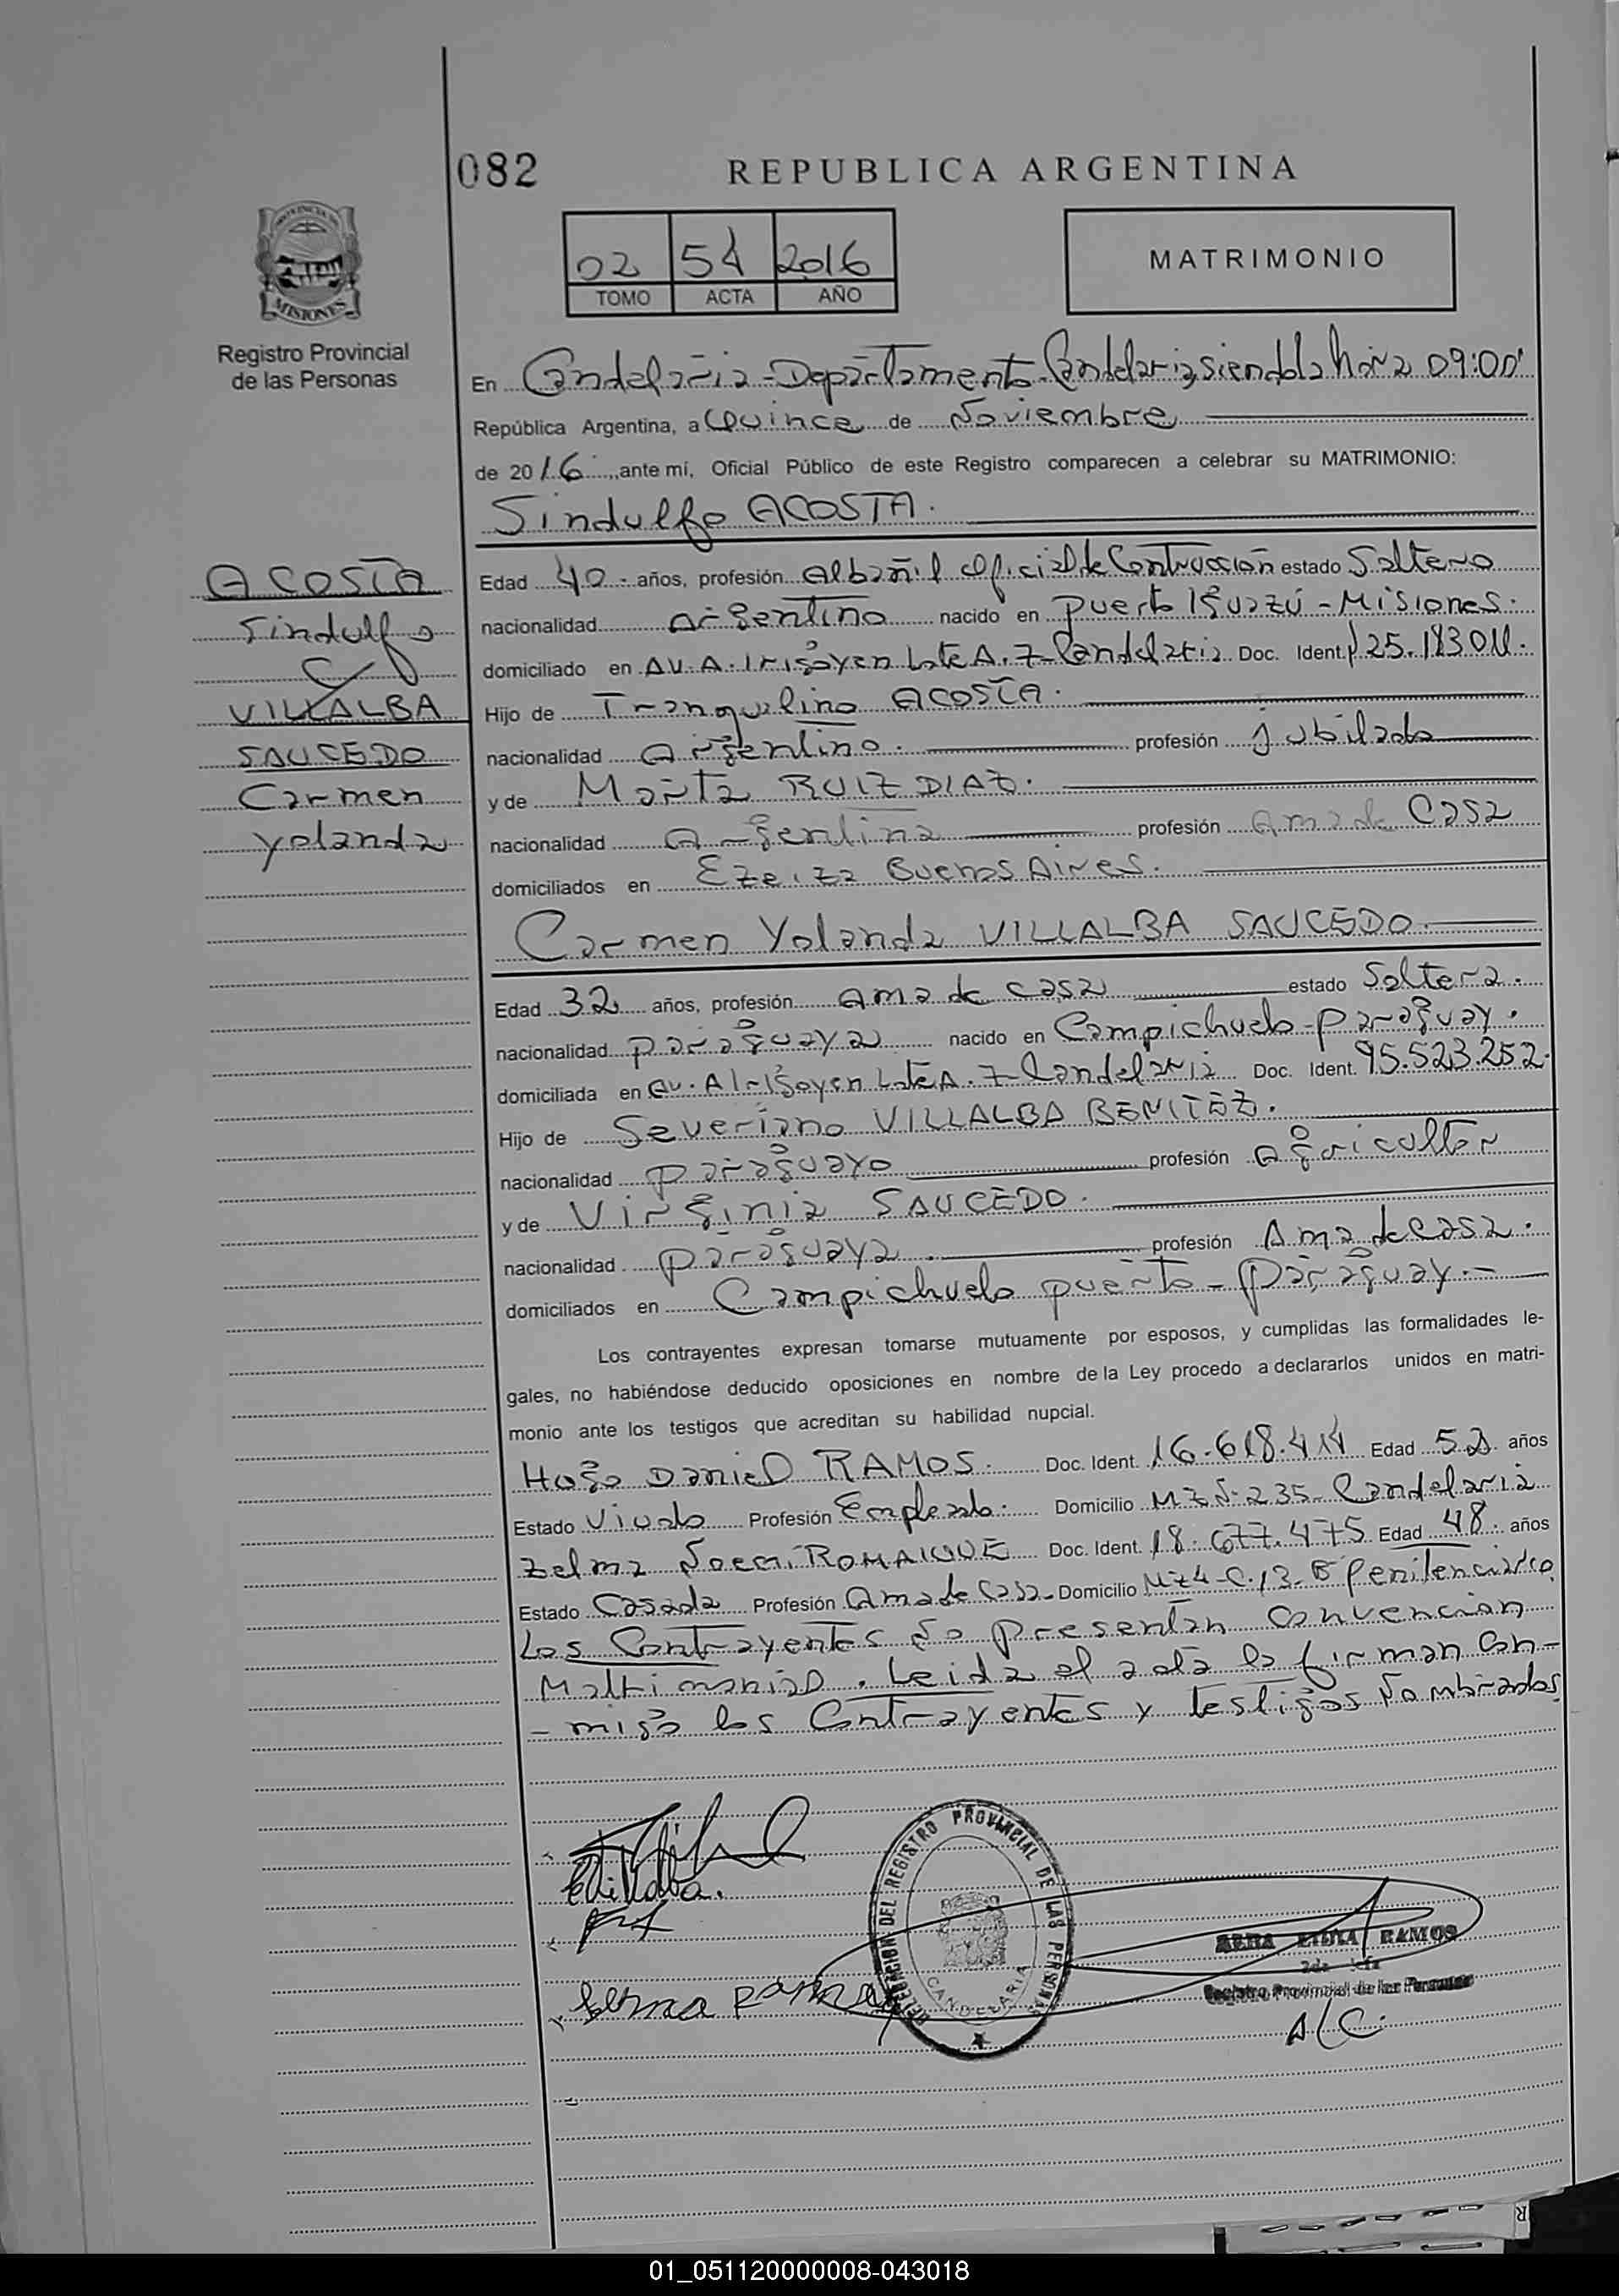 082
REPUBLICA ARGENTINA
PROVINCIA DE
MISIONES
Registro Provincial
de las Personas
02 54 2016
TOMO ACTA AÑO
MATRIMONIO
En Candelaria - Departamento Candelaria, siendo la hora 09:00'
República Argentina, a Quince de Noviembre
de 2016, ante mí, Oficial Público de este Registro comparecen a celebrar su MATRIMONIO:
Sindulfo ACOSTA.
ACOSTA
Sindulfo
C/
VILLALBA
SAUCEDO
Carmen
Yolanda
Edad 40 - años, profesión Albañil Oficial de Contrucción estado Soltero
nacionalidad Argentino nacido en Puerto Iguazú - Misiones.
domiciliado en AV. A. Irigoyen Lote A. 7 - Candelaria Doc. Ident. 25.183011.
Hijo de Tranquelino ACOSTA.
nacionalidad Argentino. profesión Jubilado
y de Marta RUIZ DIAZ.
nacionalidad Argentina profesión Ama de Casa
domiciliados en Ezeiza Buenos Aires.
Carmen Yolanda VILLALBA SAUCEDO
Edad 32 años, profesión Ama de Casa estado Soltera.
nacionalidad paraguaya nacido en Campichuelo - Paraguay.
domiciliada en Av. A Irigoyen Lote A. 7 - Candelaria Doc. Ident. 95.523.252.
Hijo de Severiano VILLALBA BENITEZ.
nacionalidad paraguayo profesión Agricultor
y de Virginia SAUCEDO.
nacionalidad paraguaya. profesión Ama de Casa.
domiciliados en Campichuelo puerto - Paraguay. -
Los contrayentes expresan tomarse mutuamente por esposos, y cumplidas las formalidades le-
gales, no habiéndose deducido oposiciones en nombre de la Ley procedo a declararlos unidos en matri-
monio ante los testigos que acreditan su habilidad nupcial.
Hugo Daniel RAMOS. Doc. Ident. 16.618.414 Edad 52 años
Estado Viudo Profesión Empleado. Domicilio Mz N- 235 - Candelaria
Zelma Noemi ROMAIQUE Doc. Ident. 18.677.475 Edad 48. años
Estado Casada Profesión Ama de Casa - Domicilio Mz 4 - C. 13 - Bº Penitenciario
Los Contrayentes No presentan convencion
Matrimonial. Leida el acta la firman Con-
- migo los Contrayentes y testigos Nombrados
Villalba.
DELEGACION DEL REGISTRO PROVINCIAL DE LAS PERSONAS
CANDELARIA
RAMOS
Registro Provincial de las Personas
A/C.
01_051120000008-043018